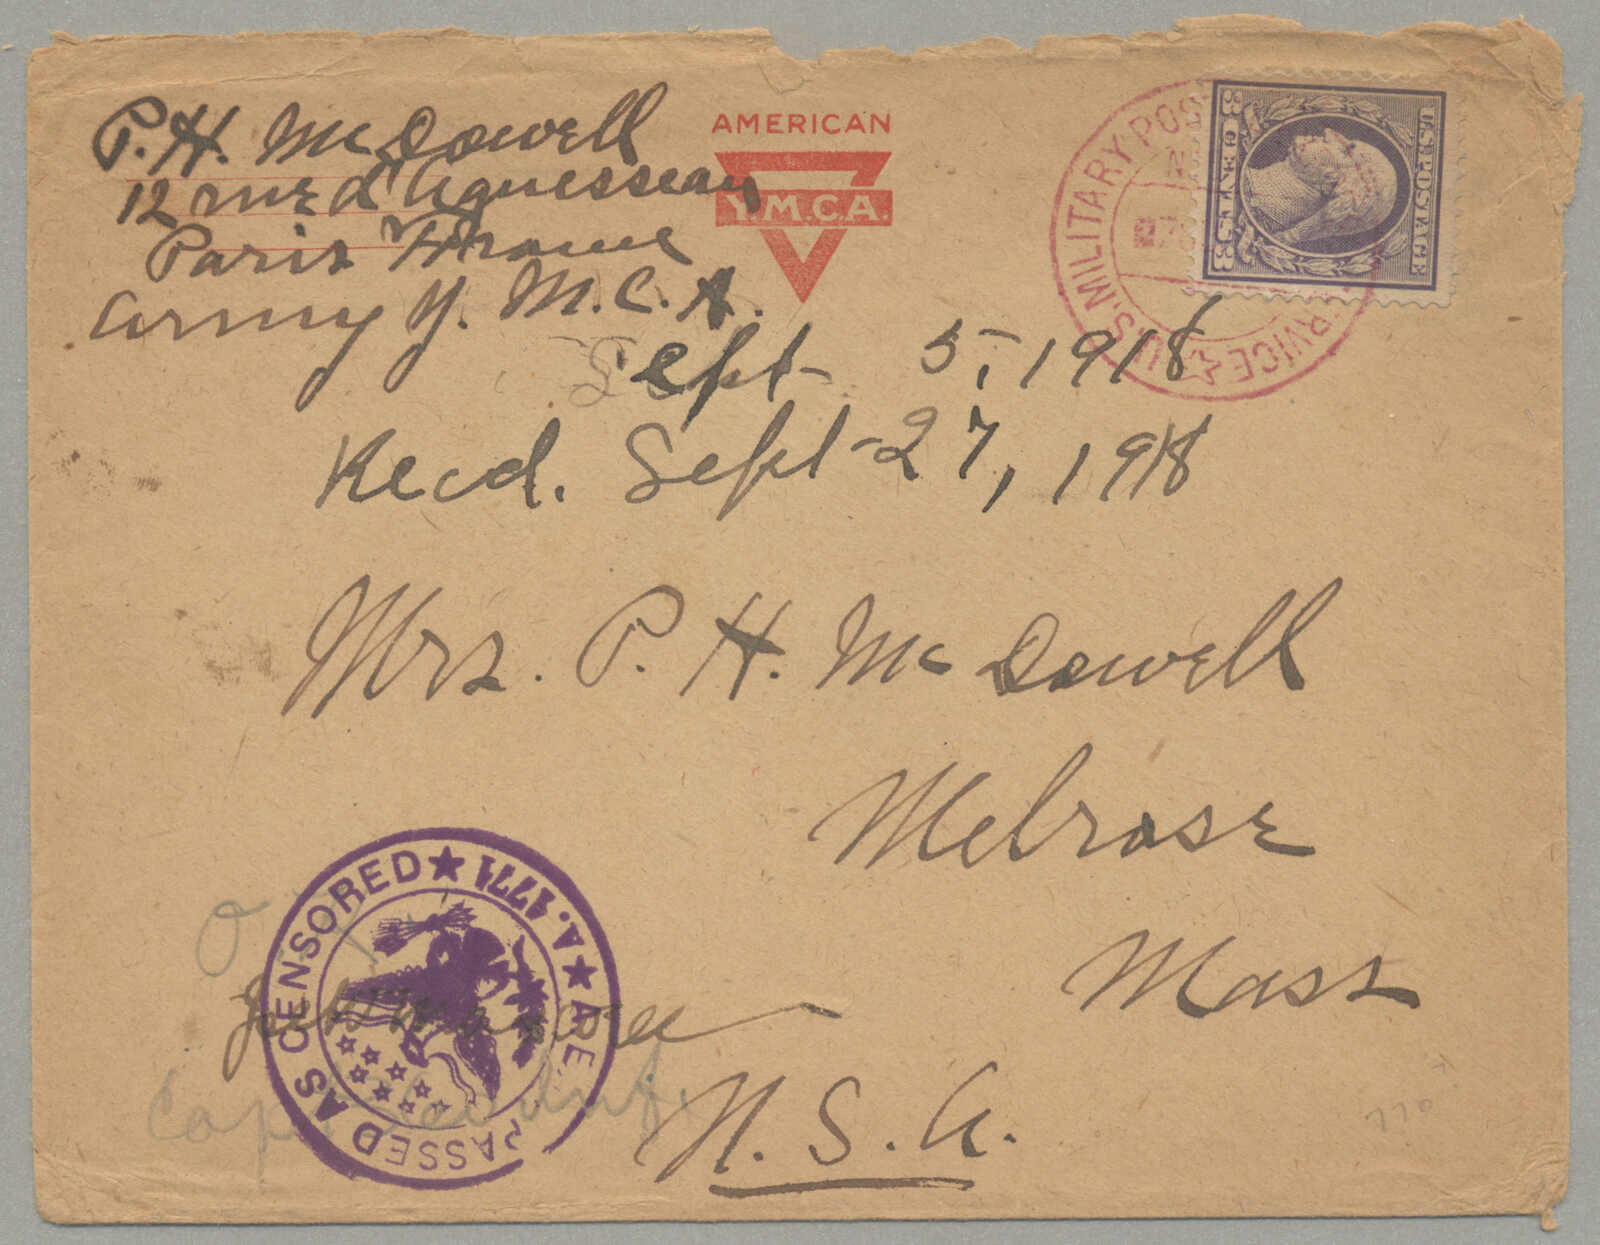 P. H. McDowell
12 rue d'Aguesseau
Paris France
Army Y. M. C. A.
AMERICAN
Y.M.C.A.
U.S. MILITARY POS RVICE
U.S. POSTAGE
3 CENTS 3
Sept 5, 1918
Recd. Sept 27, 1918
Mrs. P. H. McDowell
Melrose
Mass
U. S. A.
PASSED AS CENSORED
A. 1771
A E
Capt